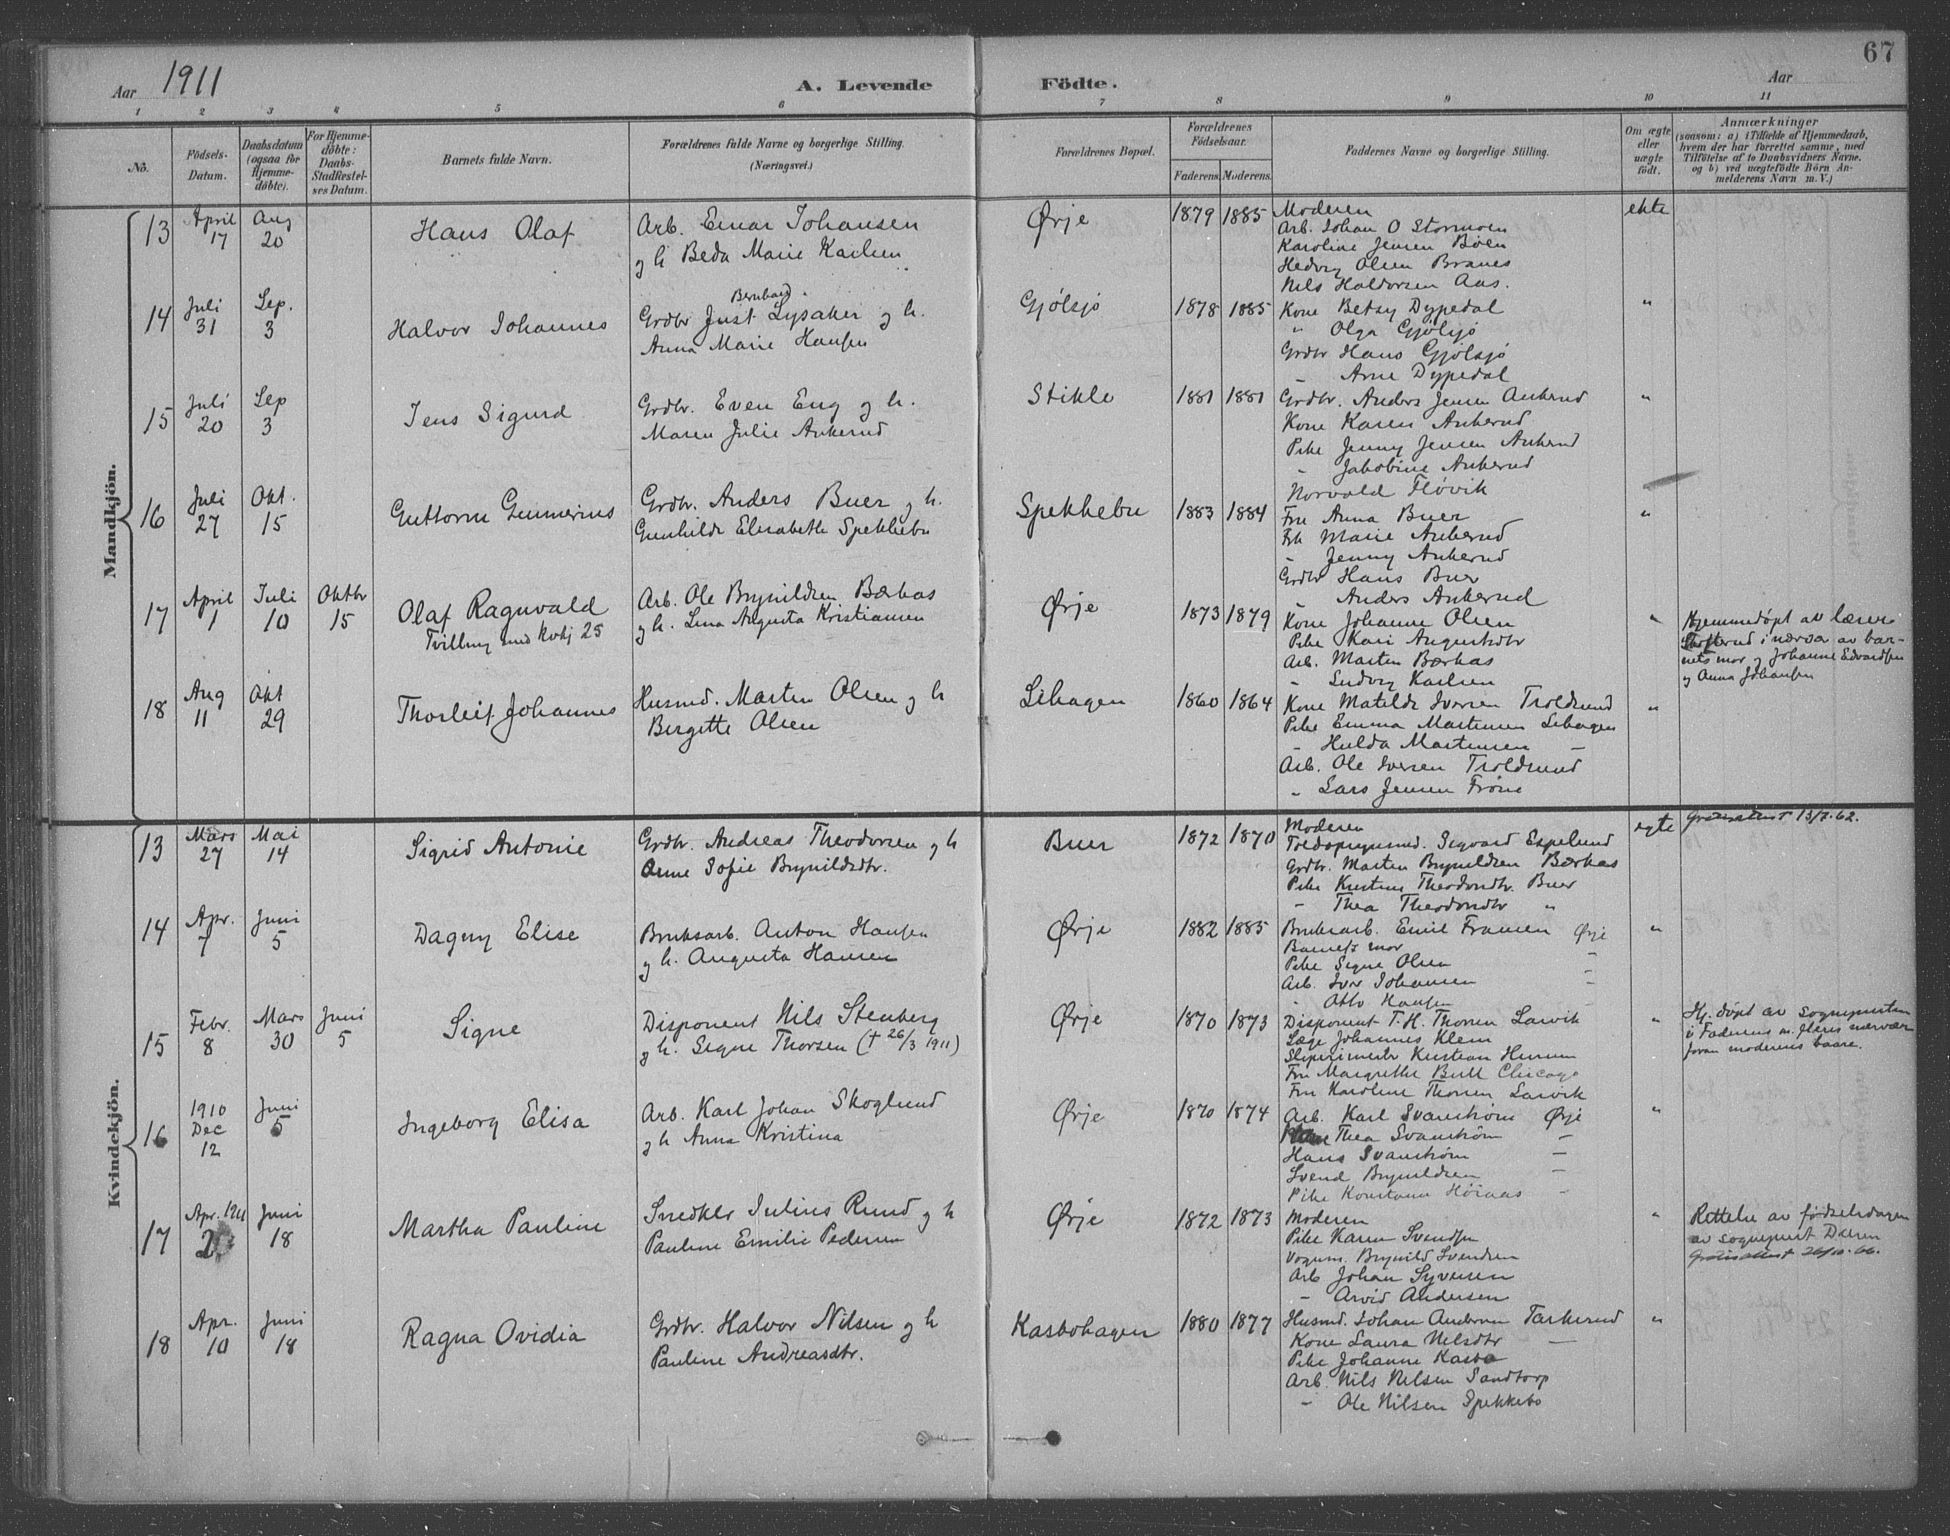 67
Aar 1911 A. Levende Födte. Aar
1 2 3 4 5 6 7 8 9 10 11
No. Födsels-Datum. Daabsdatum (ogsaa for Hjemmedöbte). For Hjemmedöbte: Daabs-Stadfæstelses Datum. Barnets fulde Navn. Forældrenes fulde Navne og borgerlige Stilling. (Næringsvei.) Forældrenes Bopæl. Forældrenes Födselsaar. Faderens. Moderens. Faddernes Navne og borgerlige Stilling. Om ægte eller uægte födt. Anmærkninger (saasom: a) i Tilfælde af Hjemmedaab, hvem der har forrettet samme, med Tilföielse af to Daabsvidners Navne. og b) ved uægtefödte Börn Anmelderens Navn m. V.)
Mandkjön.
13 April 17 Aug 20 Hans Olaf Arb. Einar Johansen
og h. Beda Marie Karlsen Ørje 1879 1885 Moderen ekte
Arb. Johan O Stormoen
Karoline Jensen Böen
Hedvig Olsen Branes
Nils Haldorsen Aas.
14 Juli 31 Sep. 3 Halvor Johannes Grdbr Just Bernhard Lysaker og h.
Anna Marie Hansen Gjölsjö 1878 1885 Kone Betsy Dypedal "
" Olga Gjölsjö
Grdbr Hans Gjölsjö
- Arne Dypedal
15 Juli 20 Sep 3 Jens Sigurd Grdbr. Even Eng og h.
Maren Julie Ankerud Stikle 1881 1881 Grdbr. Anders Jensen Ankerud "
Kone Karen Ankerud
Pike Jenny Jensen Ankerud
- Jakobine Ankerud
Norvald Flövik
16 Juli 27 Okt. 15 Guttorm Gunnerius Grdbr. Anders Buer og h.
Gunhilde Elisabeth Spekkebu Spekkebu 1883 1884 Fru Anna Buer "
Frk Marie Ankerud
- Jenny Ankerud
Grdbr Hans Buer
" Anders Ankerud
17 April 1 Juli 10 Oktbr 15 Olaf Ragnvald
Tvilling med kvkj 25 Arb. Ole Brynildsen Bærkas
og h. Lina Augusta Kristiansen Ørje 1873 1879 Kone Johanne Olsen "
Pike Kari Augustsdtr
Arb. Martin Bærkas
" Ludvig Karlsen
Hjemmedöpt av lærer
i nærvær av bar-
nets mor og Johanne Edvardsen
og Anna Johansen
18 Aug 11 Okt 29 Thorleif Johannes Husmd. Martin Olsen og h
Birgitte Olsen Lihagen 1860 1864 Kone Matilde Iversen Troldsund "
Pike Emma Martinsen Lihagen
- Hulda Martinsen -
Arb. Ole Iversen Troldsund
" Lars Jensen Fröne
Kvindekjön.
13 Mars 27 Mai 14 Sigrid Antonie Grdbr. Andreas Theodorsen og h
Anne Sofie Brynildsdtr. Buer 1872 1870 Moderen egte
Toldopsynsmd. Sigvard Espelund
Grdbr. Martin Brynildsen Bærkas
Pike Kristine Theodorsdtr. Buer
- Thea Theodorsdtr "
13/7.62.
14 Apr. 7 Juni 5 Dagny Elise Bruksarb. Anton Hansen
og h. Augusta Hansen Ørje 1882 1885 Bruksarb. Emil Fransen Ørje "
Barnets mor
Pike Signe Olsen -
Arb. Iver Johansen -
- Otto Hansen -
15 Febr. 8 Mars 30 Juni 5 Signe Disponent Nils Stenberg
og h. Signe Thorsen († 26/3 1911) Ørje 1870 1873 Disponent T. H. Thorsen Larvik "
Læge Johannes Klem
Sliperimestr Kristian Hurum
Fru Margrethe Bull Chicago
Fru Karoline Thorsen Larvik
Hj. döpt av sognepresten
i Faderens m. fleres nærvær
foran moderens baare.
16 1910 Dec 12 Juni 5 Ingeborg Elisa Arb. Karl Johan Skoglund
og h Anna Kristina Ørje 1870 1874 Arb. Karl Svanström Ørje "
Thea Svanström -
Hans Svanström -
Svend Brynildsen -
Pike Konstanse Höiaas -
17 Apr. 1911 2 Juni 18 Martha Pauline Snedker Julius Rund og h
Pauline Emilie Pedersen Ørje 1872 1873 Moderen "
Pike Karen Svendsen
Vognm. Brynild Svendsen
Arb Johan Syversen
- Arvid Andersen
Rettelse av födselsdagen
av sogneprest
26/10.66.
18 Apr. 10 Juni 18 Ragna Ovidia Grdbr. Halvor Nilsen og h
Pauline Andreasdtr. Kasbohagen 1880 1877 Husmd. Johan Andersen Tarkerud "
Kone Laura Nilsdtr -
Pike Johanne Kasbo
Arb. Nils Nilsen Sandtorp
- Ole Nilsen Spekkebo